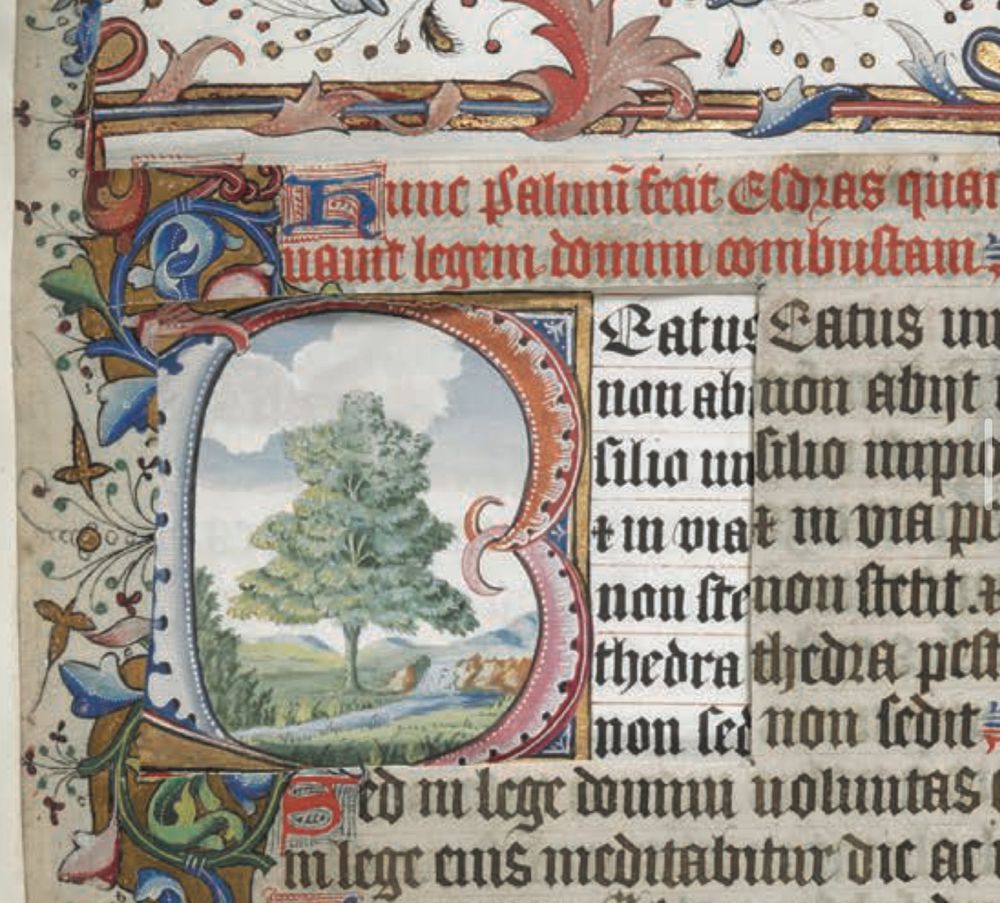 Hunc psalmū fecit Esdras quan
uauit legem domini combustam
Eatus Eatus im
non ab non abijt
silio im silio impio
⁊ in via ⁊ in via pe
non ste non stetit. ⁊
thedra thedra pest
non sed non sedit
Sed in lege domini uoluntas
in lege eius meditabitur die ac